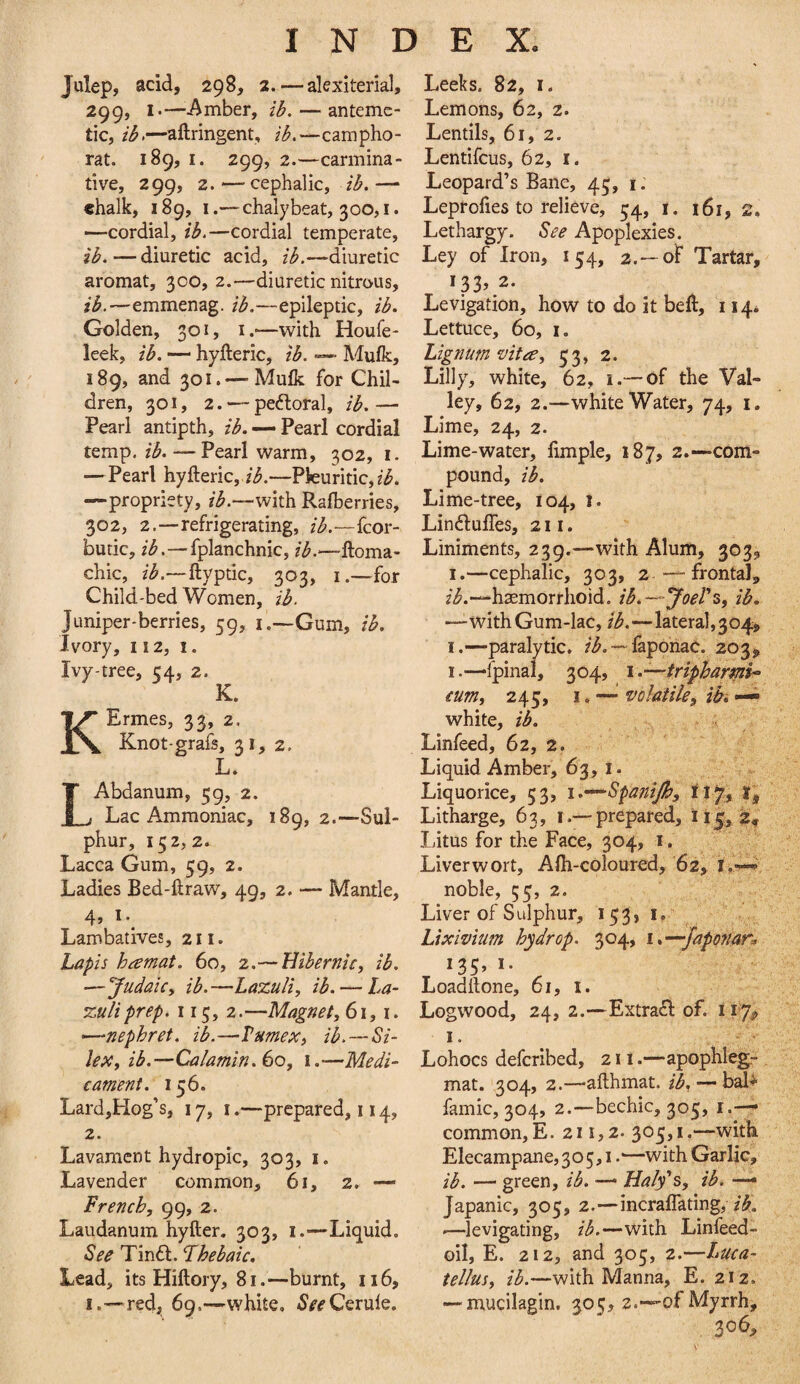 INDEX.
Julep, acid, 298, 2. — alexiterial,
299, 1.—Amber, ib. — anteme-
tic, ib.—aſtringent, ib.—campho-
rat. 189, 1. 299, 2.—carmina-
tive, 299, 2. — cephalic, ib. —
chalk, 189, 1.—chalybeat, 300, 1.
—cordial, ib.—cordial temperate,
ib. — diuretic acid, ib.—diuretic
aromat, 300, 2.—diuretic nitrous,
ib.—emmenag. ib.—epileptic, ib.
Golden, 301, 1.—with Houſe-
leek, ib. — hyſteric, ib. — Muſk,
189, and 301. — Muſk for Chil-
dren, 301, 2. — pectoral, ib. —
Pearl antipth, ib. — Pearl cordial
temp. ib. — Pearl warm, 302, 1.
— Pearl hyſteric, ib.—Pleuritic, ib.
—propriety, ib.—with Raſberries,
302, 2.—refrigerating, ib.—ſcor-
butic, ib.—ſplanchnic, ib.—ſtoma-
chic, ib.—ſtyptic, 303, 1.—for
Child-bed Women, ib.
Juniper-berries, 59, 1.—Gum, ib.
Ivory, 112, 1.
Ivy-tree, 54, 2.
K.
KErmes, 33, 2.
Knot-graſs, 31, 2.
L.
LAbdanum, 59, 2.
Lac Ammoniac, 189, 2.—Sul-
phur, 152, 2.
Lacca Gum, 59, 2.
Ladies Bed-ſtraw, 49, 2. — Mantle,
4, 1.
Lambatives, 211.
Lapis hæmat. 60, 2.—Hibernic, ib.
—Judaic, ib.—Lazuli, ib. — La-
zuli prep. 115, 2.—Magnet, 61, 1.
—nephret. ib.—Pumex, ib.—Si-
lex, ib.—Calamin. 60, 1.—Medi-
cament. 156.
Lard, Hog's, 17, 1.—prepared, 114,
2.
Lavament hydropic, 303, 1.
Lavender common, 61, 2. —
French, 99, 2.
Laudanum hyſter. 303, 1.—Liquid.
See Tinct. Thebaic.
Lead, its Hiſtory, 81.—burnt, 116,
1.—red, 69.—white. See Ceruſe.
Leeks. 82, 1.
Lemons, 62, 2.
Lentils, 61, 2.
Lentiſcus, 62, 1.
Leopard's Bane, 45, 1.
Leproſies to relieve, 54, 1. 161, 2.
Lethargy. See Apoplexies.
Ley of Iron, 154, 2.—of Tartar,
133, 2.
Levigation, how to do it beſt, 114.
Lettuce, 60, 1.
Lignum vitæ, 53, 2.
Lilly, white, 62, 1.—of the Val-
ley, 62, 2.—white Water, 74, 1.
Lime, 24, 2.
Lime-water, ſimple, 187, 2.—com-
pound, ib.
Lime-tree, 104, 1.
Linctuſſes, 211.
Liniments, 239.—with Alum, 303,
1.—cephalic, 303, 2 — frontal,
ib.—hæmorrhoid. ib.—Joel's, ib.
—with Gum-lac, ib.—lateral, 304,
1.—paralytic. ib.—ſaponac. 203,
1.—ſpinal, 304, 1.—tripharmi-
cum, 245, 1. — volatile, ib. —
white, ib.
Linſeed, 62, 2.
Liquid Amber, 63, 1.
Liquorice, 53, 1.—Spaniſh, 117, 1,
Litharge, 63, 1.—prepared, 115, 2,
Litus for the Face, 304, 1.
Liverwort, Aſh-coloured, 62, 1.—
noble, 55, 2.
Liver of Sulphur, 153, 1.
Lixivium hydrop. 304, 1.—ſaponar.
135, 1.
Loadſtone, 61, 1.
Logwood, 24, 2.—Extract of. 117,
1.
Lohocs deſcribed, 211.—apophleg-
mat. 304, 2.—aſthmat. ib. — bal-
ſamic, 304, 2.—bechic, 305, 1.—
common, E. 211, 2. 305, 1.—with
Elecampane, 305, 1.—with Garlic,
ib. — green, ib. — Haly's, ib. —
Japanic, 305, 2.—incraſſating, ib.
—levigating, ib.—with Linſeed-
oil, E. 212, and 305, 2.—Luca-
tellus, ib.—with Manna, E. 212.
— mucilagin. 305, 2.—of Myrrh,
306,